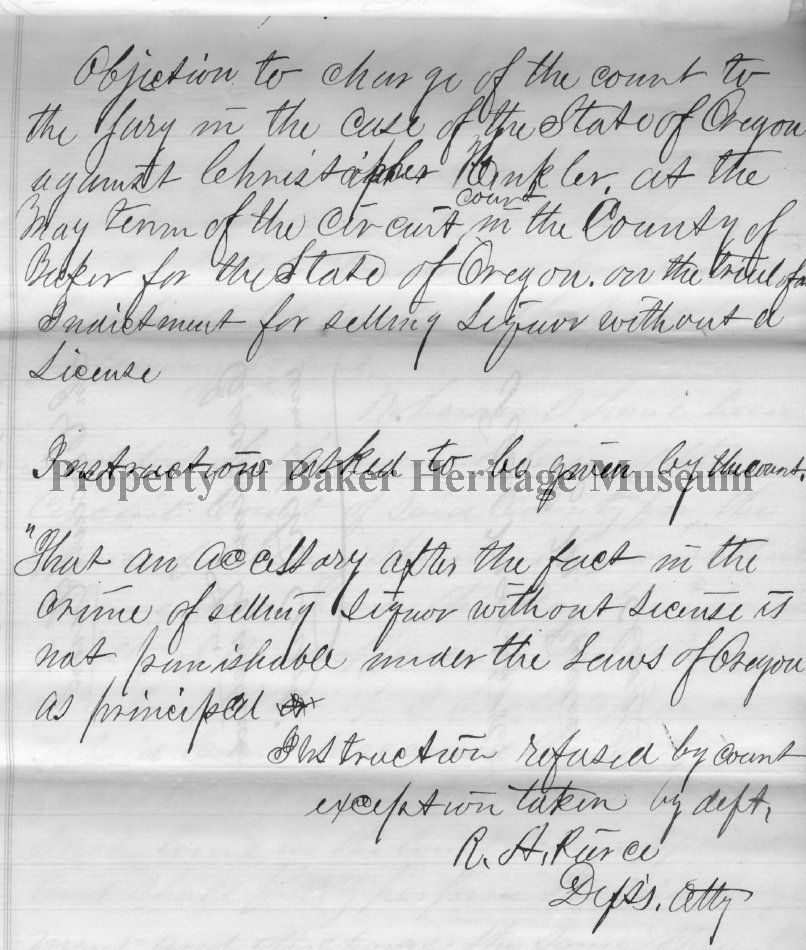 Objection to charge of the court to
the Jury in the case of the State of Oregon
against Christopher Winkler, at the
May term of the Circuit court in the County of
Baker for the State of Oregon. on the trial of an
Indictment for selling Liquor without a
License
Instruction asked to be given by the court.
Property of Baker Heritage Museum
"That an accessory after the fact in the
crime of selling Liquor without License is
not punishable under the Laws of Oregon
as principal
Instruction refused by court
exception taken by deft,
R. A. Pierce
Deft's. Atty